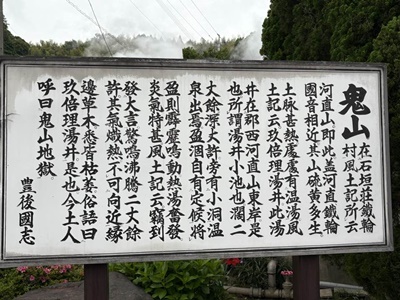 鬼山
在石垣莊鐵輪
村風土記所云
河直山即此盖河直鐵輪
國音相近其山硫黄多生
土脉甚熱處處有温湯風
土記云玖倍理湯井此湯
井在郡西河直山東岸是
也所謂湯井小池也濶二
大餘深大許旁有小洞温
泉出焉盈涸自有定候將
盈則霹靂鳴動熱湯奮發
炎氣特甚風土記云竊到
發大言驚鳴沸騰二丈餘
許其氣熾熱不可向近縁
邊草木悉皆枯萎俗語曰
玖倍理湯井是也今土人
呼曰鬼山地獄
豊後國志